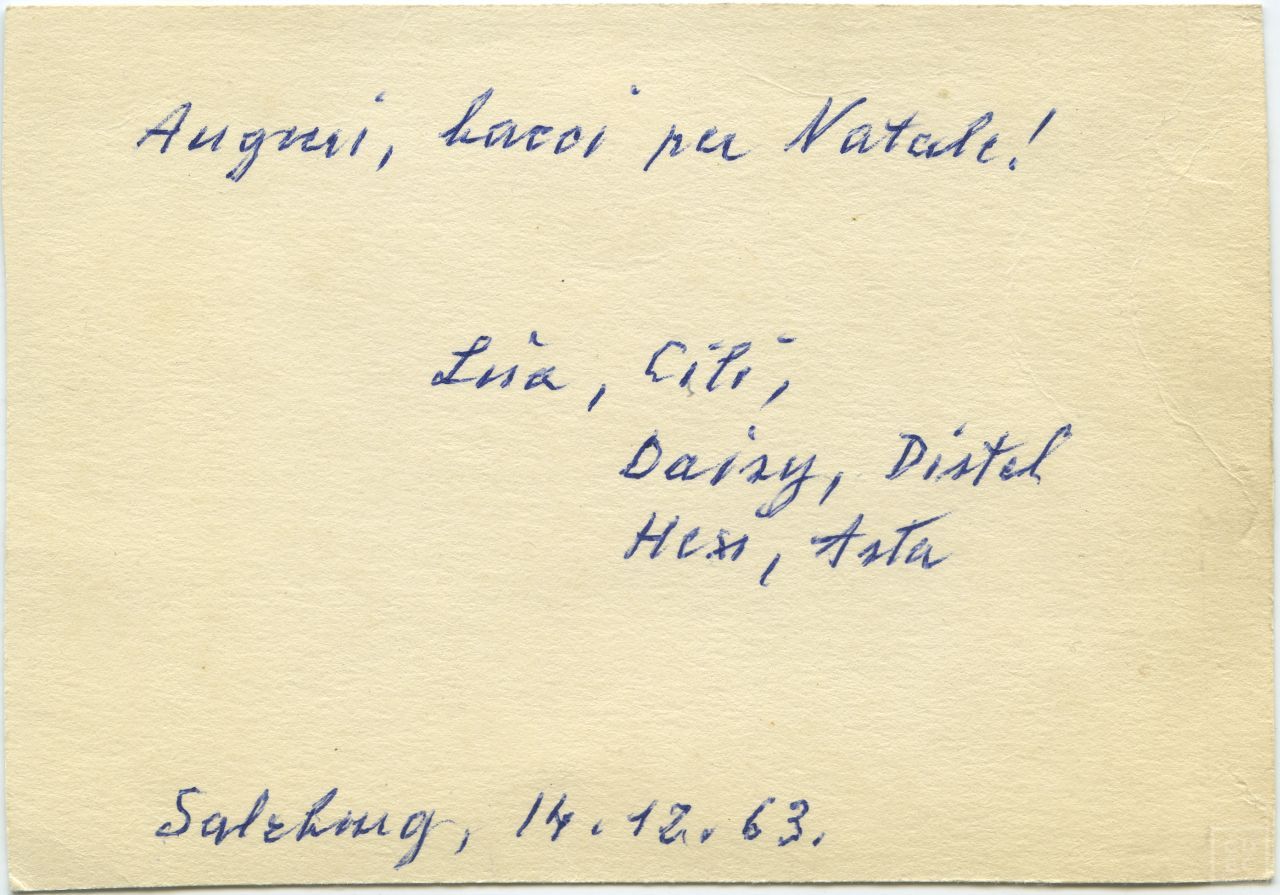 Auguri, bacci per Natale!
Lisa, Cili,
Daisy, Distel
Hexi, Asta
Salzburg, 14.12.63.